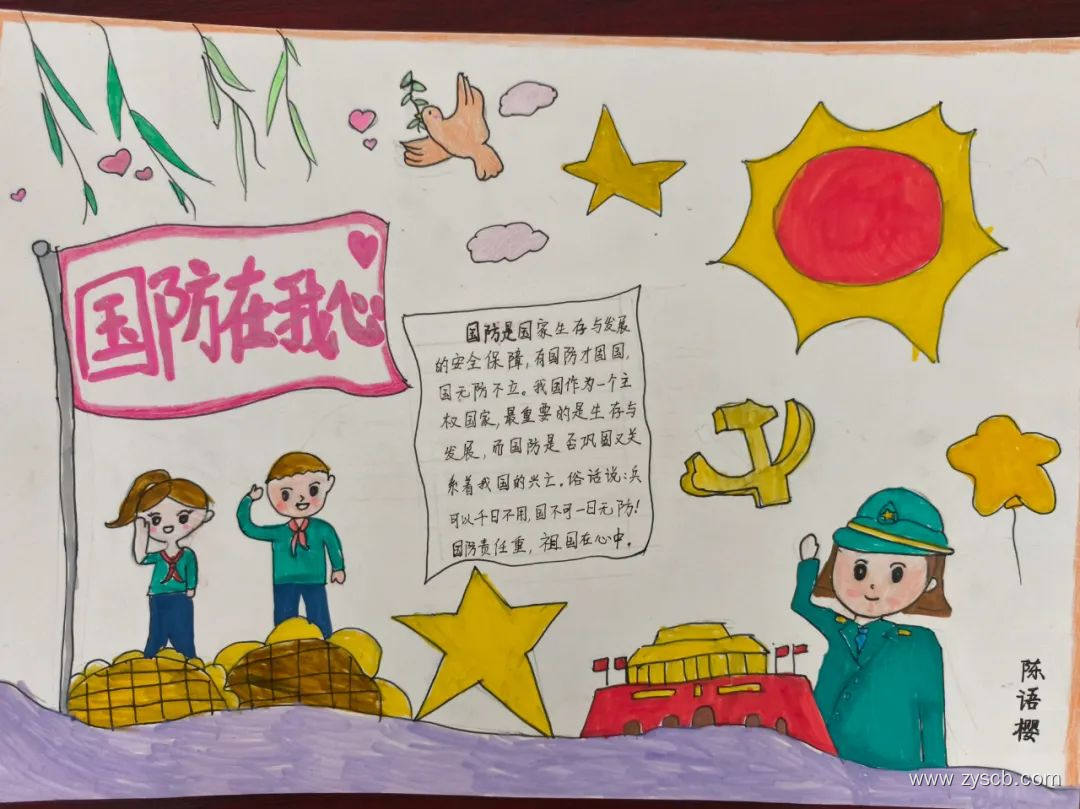 国防在我心
国防是国家生存与发展
的安全保障,有国防才固国,
国无防不立。我国作为一个主
权国家,最重要的是生存与
发展,而国防是否巩固又关
系着我国的兴亡。俗话说:兵
可以千日不用,国不可一日无防!
国防责任重,祖国在心中。
陈语樱
www.zyscb.com